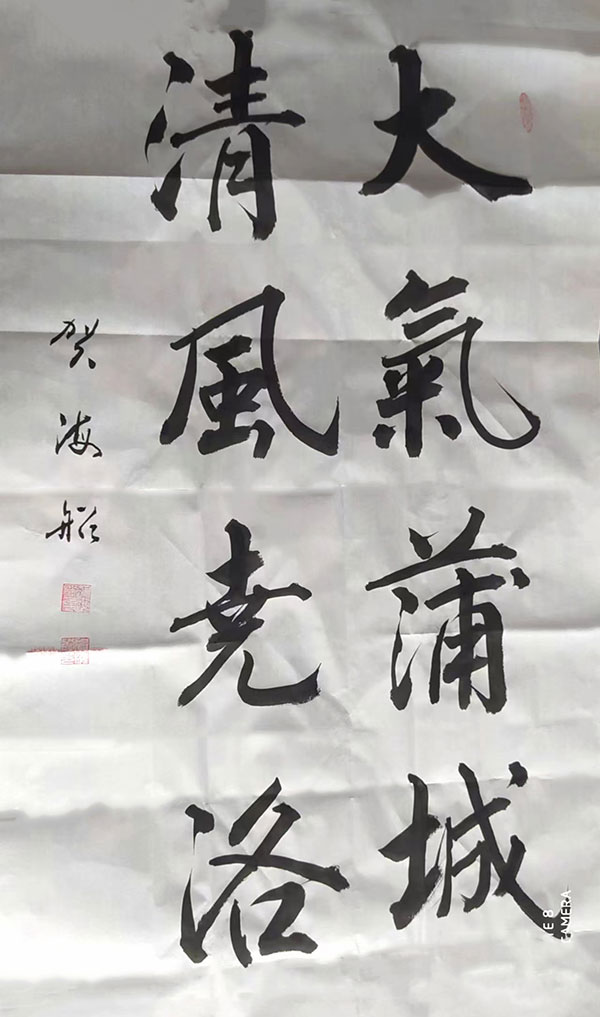 大氣蒲城
清風尭洛
贺海船
E 8
CAMERA